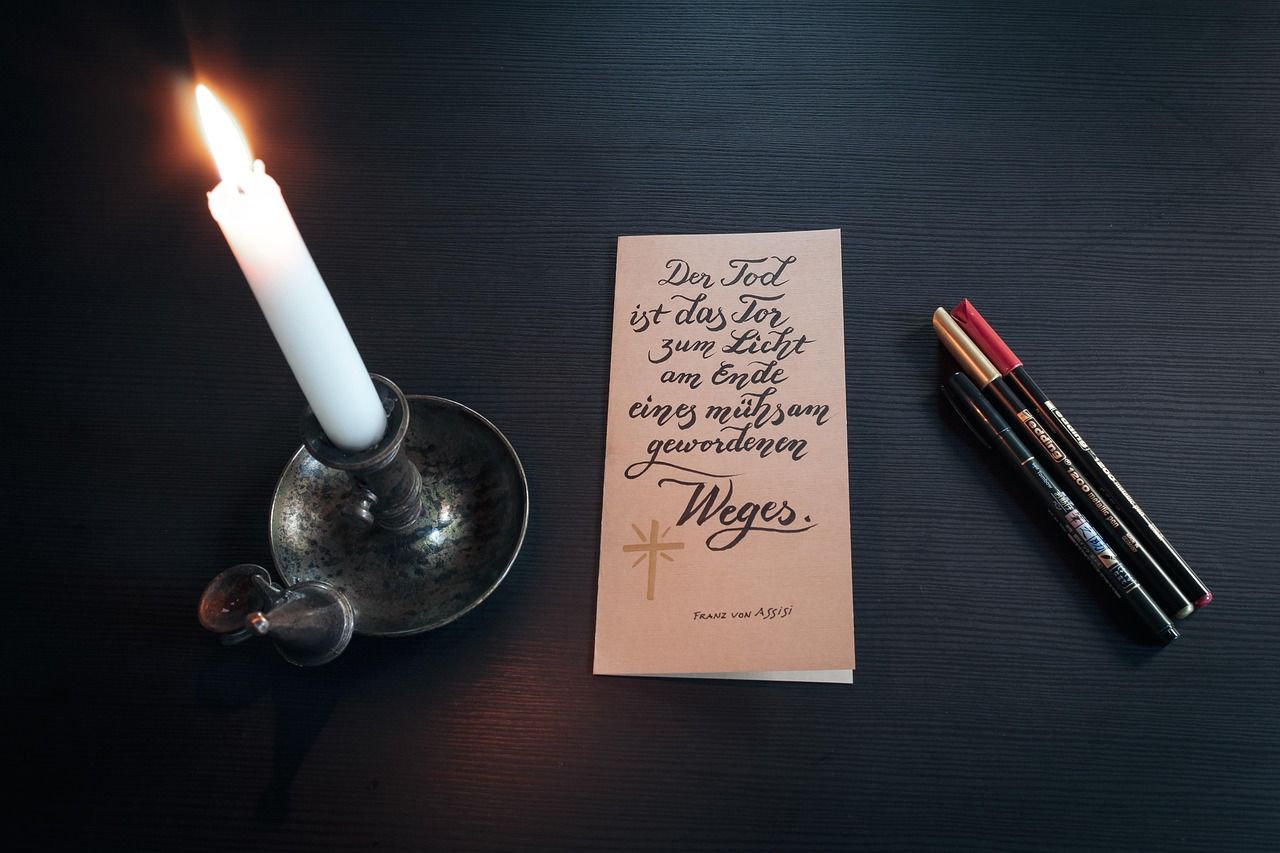 Der Tod
ist das Tor
zum Licht
am Ende
eines mühsam
gewordenen
Weges.
Franz von Assisi
edding
edding 1200 metallic pen